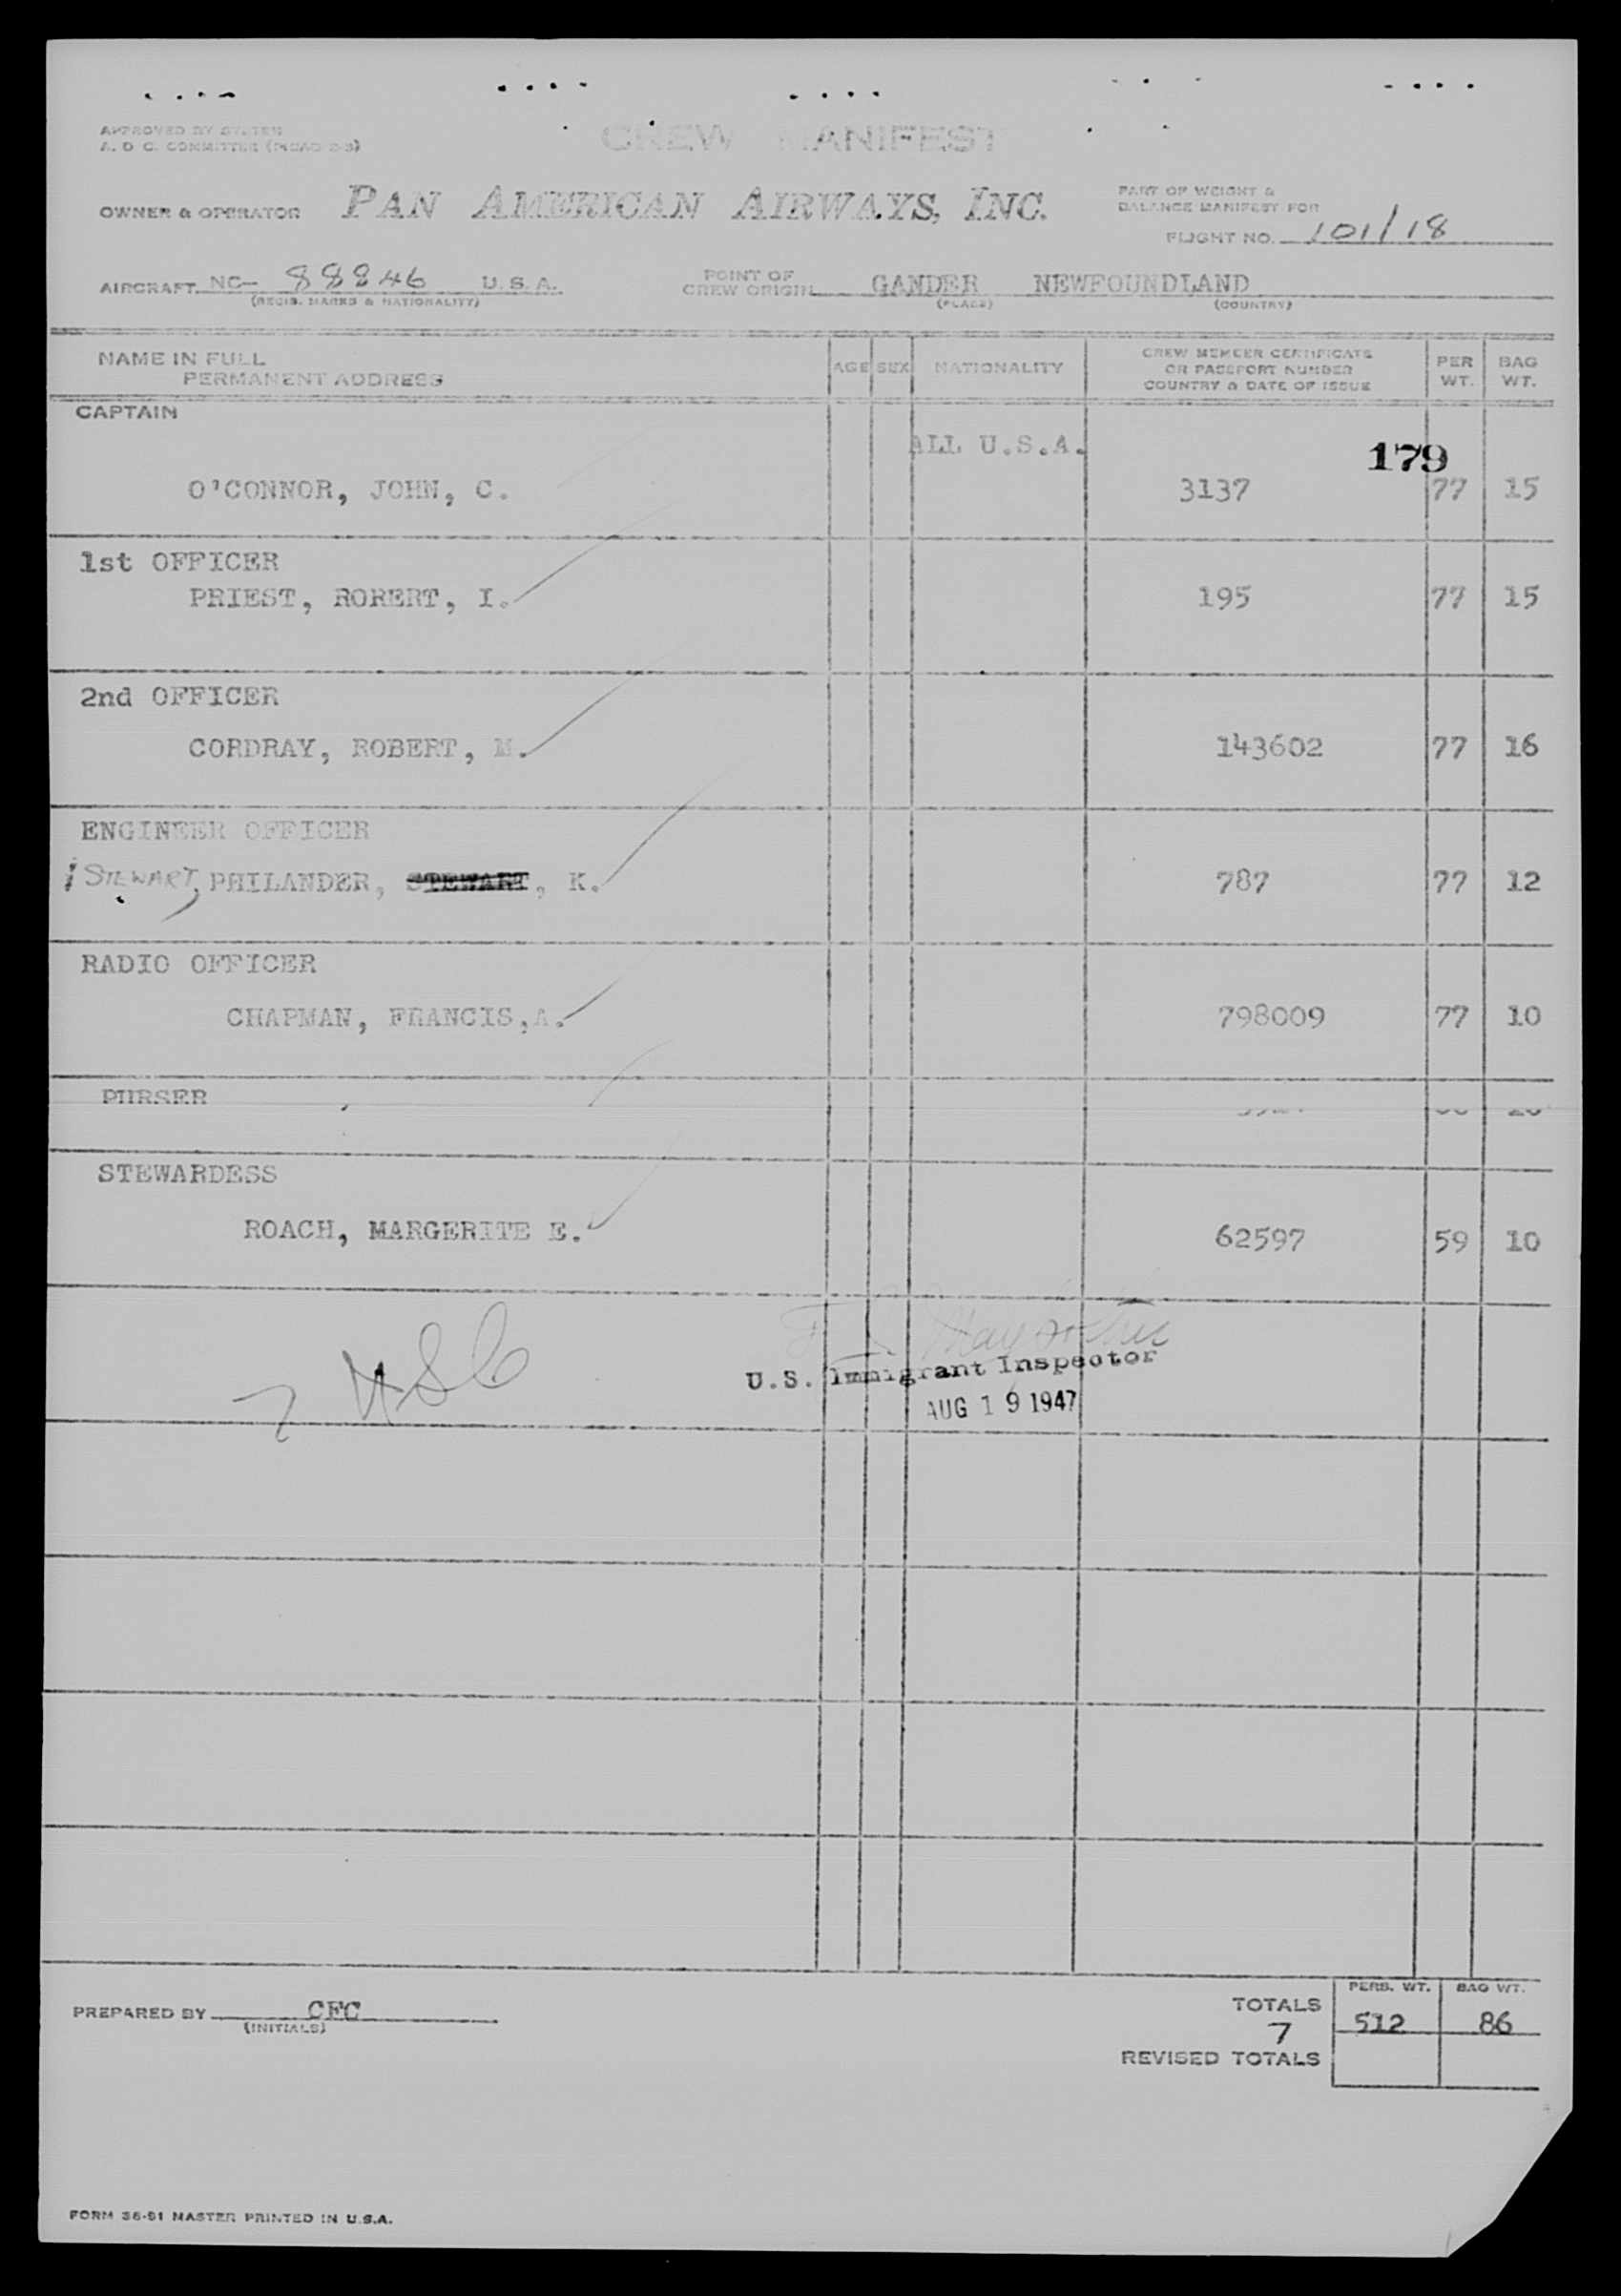 APPROVED BY SYSTEM
A. D C. COMMITTEE
CREW MANIFEST
OWNER & OPERATOR PAN AMERICAN AIRWAYS, INC.
PART OF WEIGHT &
BALANCE MANIFEST FOR
FLIGHT NO. 101/18
AIRCRAFT NC- 88846 U.S.A. POINT OF CREW ORIGIN GANDER NEWFOUNDLAND
(REGIS. MARKS & NATIONALITY) (PLACE) (COUNTRY)
NAME IN FULL
PERMANENT ADDRESS
AGE SEX NATIONALITY
CREW MEMBER CERTIFICATE
OR PASSPORT NUMBER
COUNTRY & DATE OF ISSUE
PER WT. BAG WT.
CAPTAIN
ALL U.S.A.
179
O'CONNOR, JOHN, C. 3137 77 15
1st OFFICER
PRIEST, ROBERT, I. 195 77 15
2nd OFFICER
CORDRAY, ROBERT, M. 143602 77 16
ENGINEER OFFICER
STEWART, PHILANDER, STEWART, K. 787 77 12
RADIO OFFICER
CHAPMAN, FRANCIS,A. 798009 77 10
PURSER
STEWARDESS
ROACH, MARGERITE E. 62597 59 10
U.S. Immigrant Inspector
AUG 19 1947
7 USC
PERS. WT. BAG WT.
PREPARED BY CFC TOTALS 512 86
(INITIALS) 7
REVISED TOTALS
FORM 36-91 MASTER PRINTED IN U.S.A.